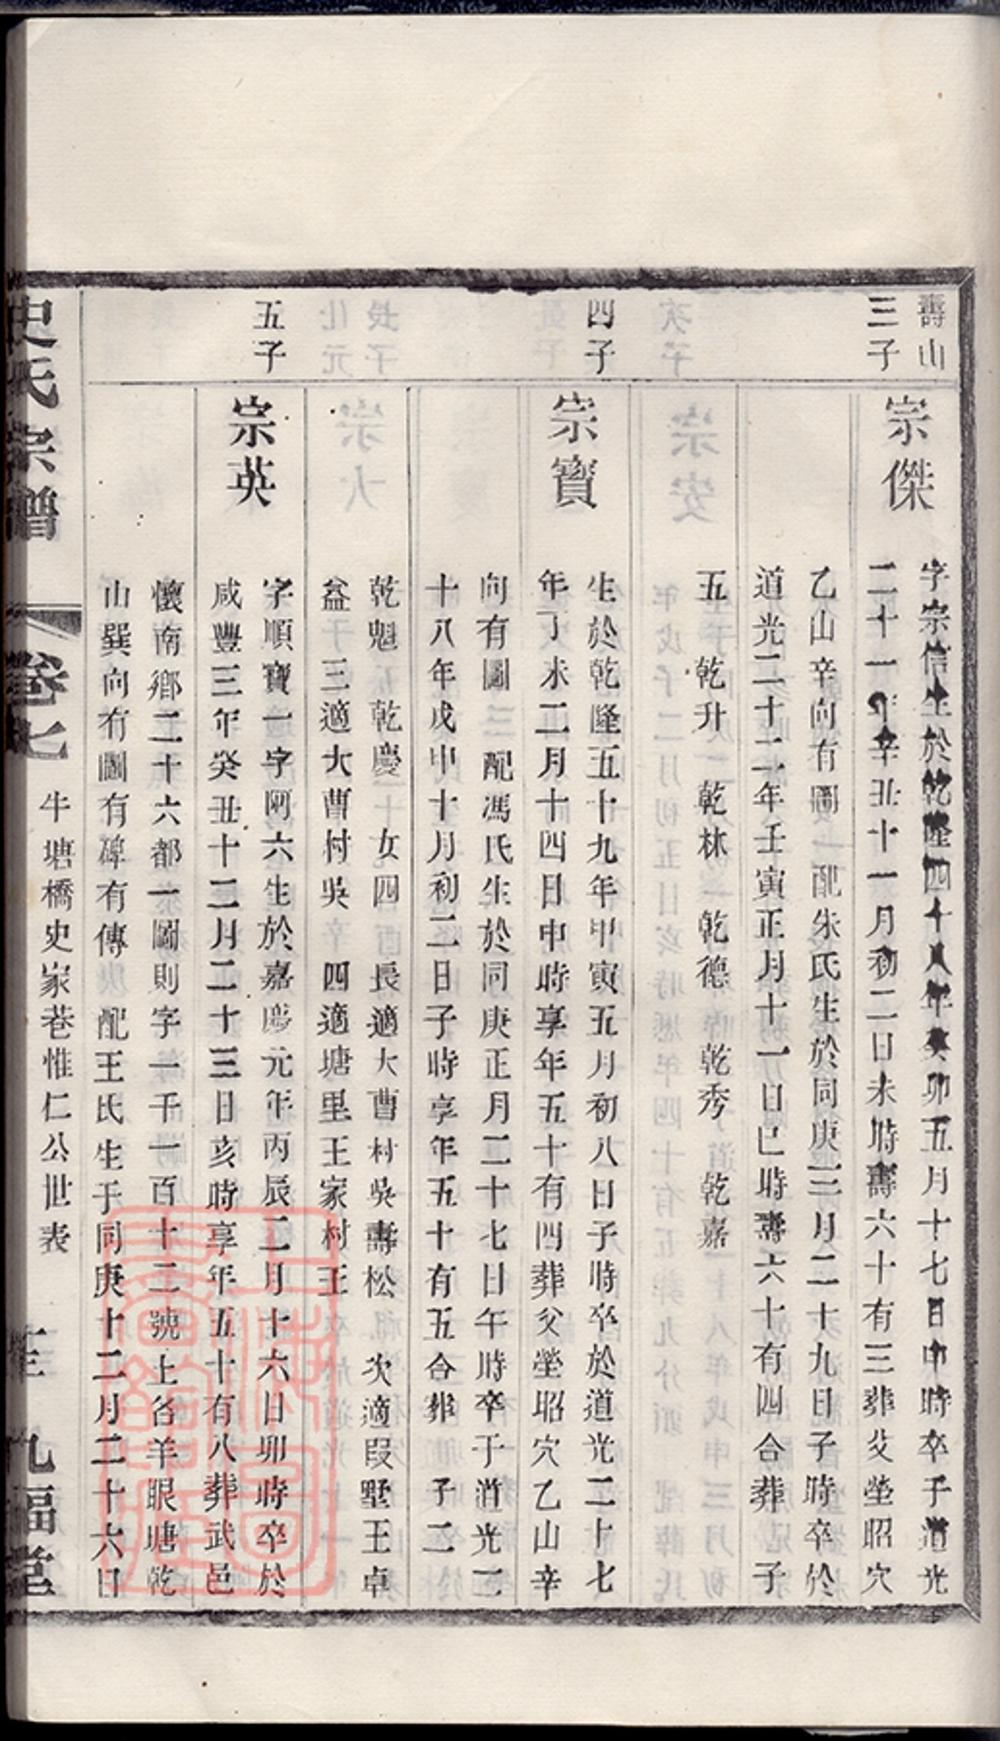 壽山
三子
宗傑
字宗信生於乾隆四十八年癸卯五月十七日申時卒于道光
二十一年辛丑十一月初二日未時壽六十有三葬父塋昭穴
乙山辛向有圖 配朱氏生於同庚三月二十九日子時卒於
道光二十二年壬寅正月十一日巳時壽六十有四合葬 子
五 乾升 乾林 乾德 乾秀 乾嘉
四子
宗寶
生於乾隆五十九年甲寅五月初八日子時卒於道光二十七
年丁未二月十四日申時享年五十有四葬父塋昭穴乙山辛
向有圖 配馮氏生於同庚正月二十七日午時卒于道光二
十八年戊申十月初二日子時享年五十有五合葬 子二
乾魁 乾慶 女四 長適大曹村吳壽松 次適段墅王卓
益 三適大曹村吳 四適塘里王家村王
五子
宗英
字順寶一字阿六生於嘉慶元年丙辰二月十六日卯時卒於
咸豐三年癸丑十二月二十三日亥時享年五十有八葬武邑
懷南鄉二十六都一圖則字一千一百十二號上名羊眼塘乾
山巽向有圖有碑有傳 配王氏生于同庚十二月二十六日
史氏宗譜 卷七 牛塘橋史家巷惟仁公世表 九福堂